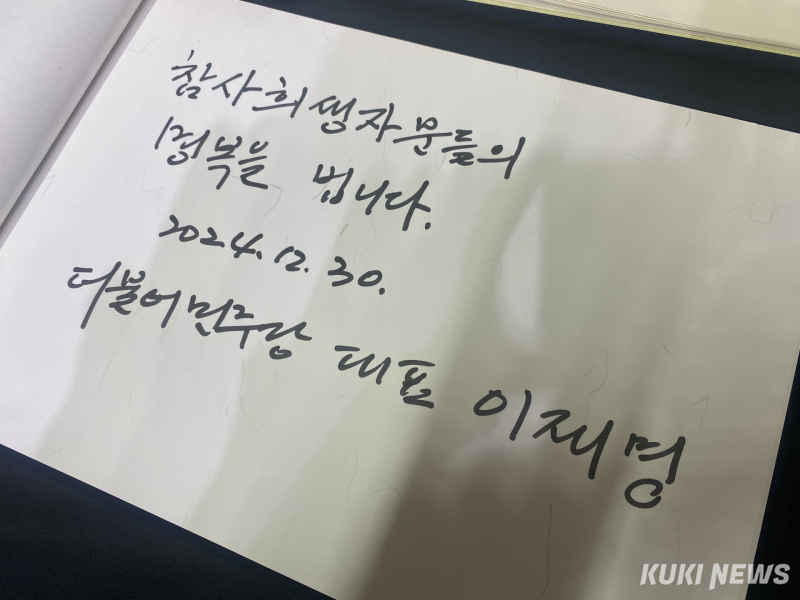 참사희생자분들의
명복을 빕니다.
2024. 12. 30.
더불어민주당 대표 이재명
KUKI NEWS